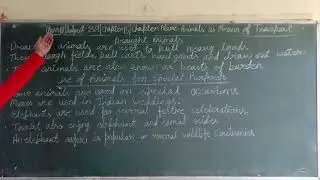 Subject SST Chapter Chapter Name Animals as Means of Transport
Draught Animals
Draught animals are used to pull heavy loads.
They plough fields, pull carts, haul goods and draw out water.
The animals are also known as beasts of burden.
Use of Animals for Special Purposes
Some animals are used on special occasions.
Mares are used in Indian weddings.
Elephants are used for several festive celebrations.
Tourist also enjoy elephant and camel rides.
An elephant safari is popular in several wildlife Sanctuaries.